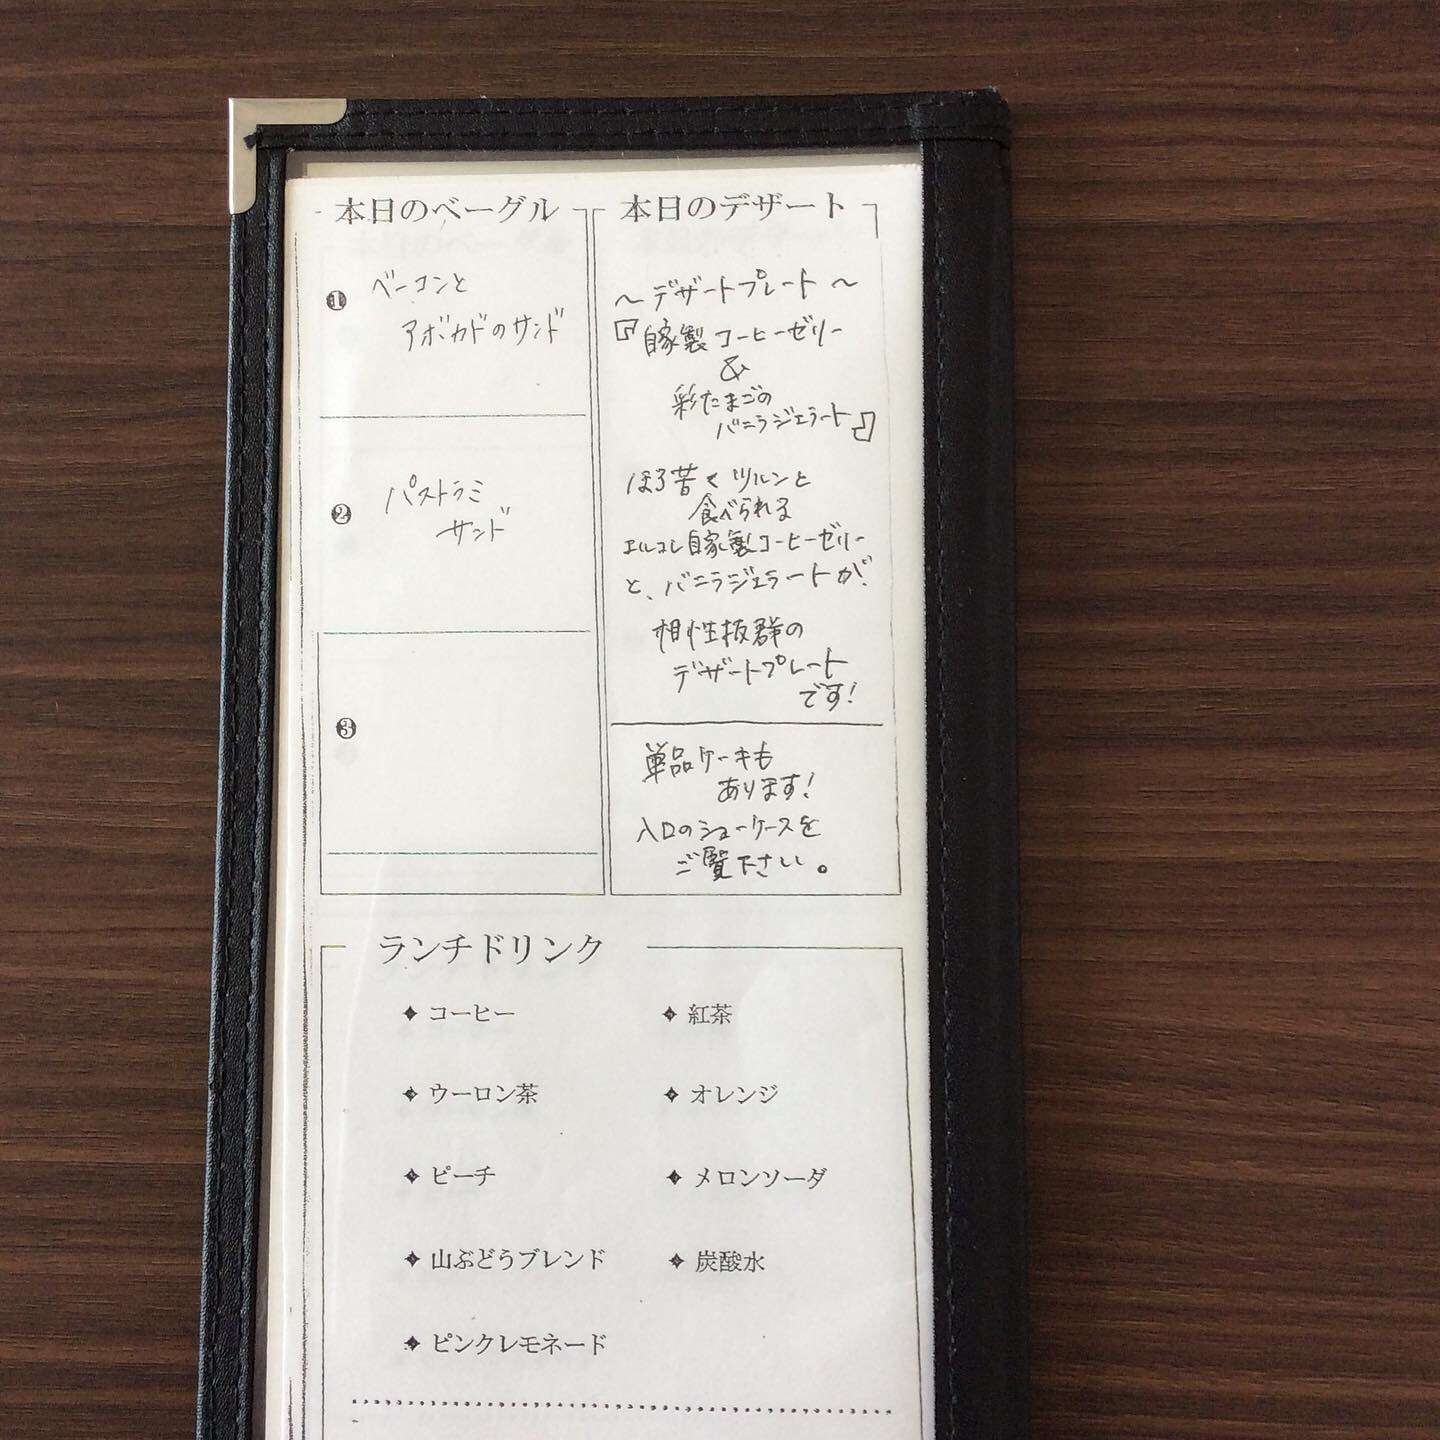 本日のベーグル
❶ ベーコンと
アボカドのサンド
❷ パストラミ
サンド
❸
本日のデザート
〜デザートプレート〜
『自家製コーヒーゼリー
&
彩たまごの
バニラジェラート』
ほろ苦くツルンと
食べられる
エルコレ自家製コーヒーゼリー
と、バニラジェラートが
相性抜群の
デザートプレート
です!
単品ケーキも
あります!
入口のショーケースを
ご覧下さい。
ランチドリンク
コーヒー
紅茶
ウーロン茶
オレンジ
ピーチ
メロンソーダ
山ぶどうブレンド
炭酸水
ピンクレモネード